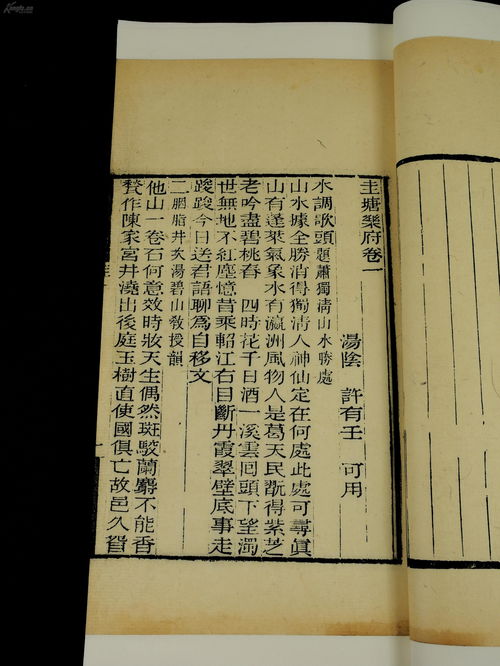 圭塘樂府卷一
湯陰 許有壬 可用
水調歌頭 題蕭獨淸山水勝處
山水據全勝消得獨淸人神仙定在何處此處可尋眞
山有蓬萊氣象水有瀛洲風物人是葛天民旣得紫芝
老吟盡碧桃春 四時花千日酒一溪雲回頭下望濁
世無地不紅塵憶昔乘軺江右目斷丹霞翠壁底事走
踆踆今日送君語聊爲自移文
二 胭脂井次湯碧山敎授韻
他山一卷石何意效時妝天生偶然斑駮蘭麝不能香
甃作陳家宮井澆出後庭玉樹直使國俱亡故邑久眢
Kongfz.cn